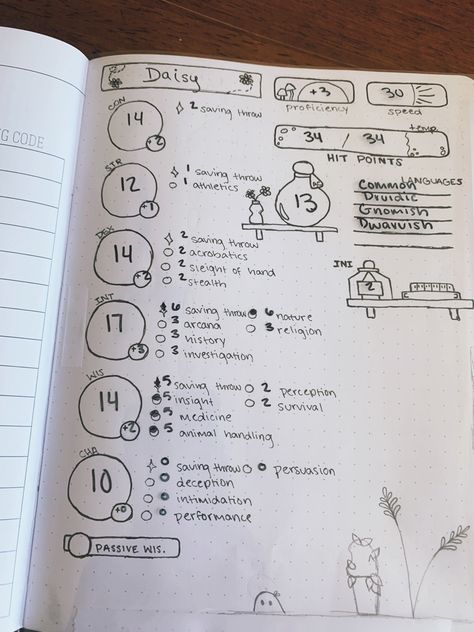 G CODE
Daisy
+3
proficiency
30
speed
CON
14
+2
2 saving throw
temp
34 / 34
HIT POINTS
STR
12
+1
1 saving throw
1 athletics
AC
13
LANGUAGES
Common
Druidic
Gnomish
Dwarvish
DEX
14
+2
2 saving throw
2 acrobatics
2 sleight of hand
2 stealth
INI
2
INT
17
+3
6 saving throw 6 nature
3 arcana 3 religion
3 history
3 investigation
WIS
14
+2
5 saving throw 2 perception
5 insight 2 survival
5 medicine
5 animal handling
CHA
10
+0
0 saving throw 0 persuasion
0 deception
0 intimidation
0 performance
PASSIVE WIS.